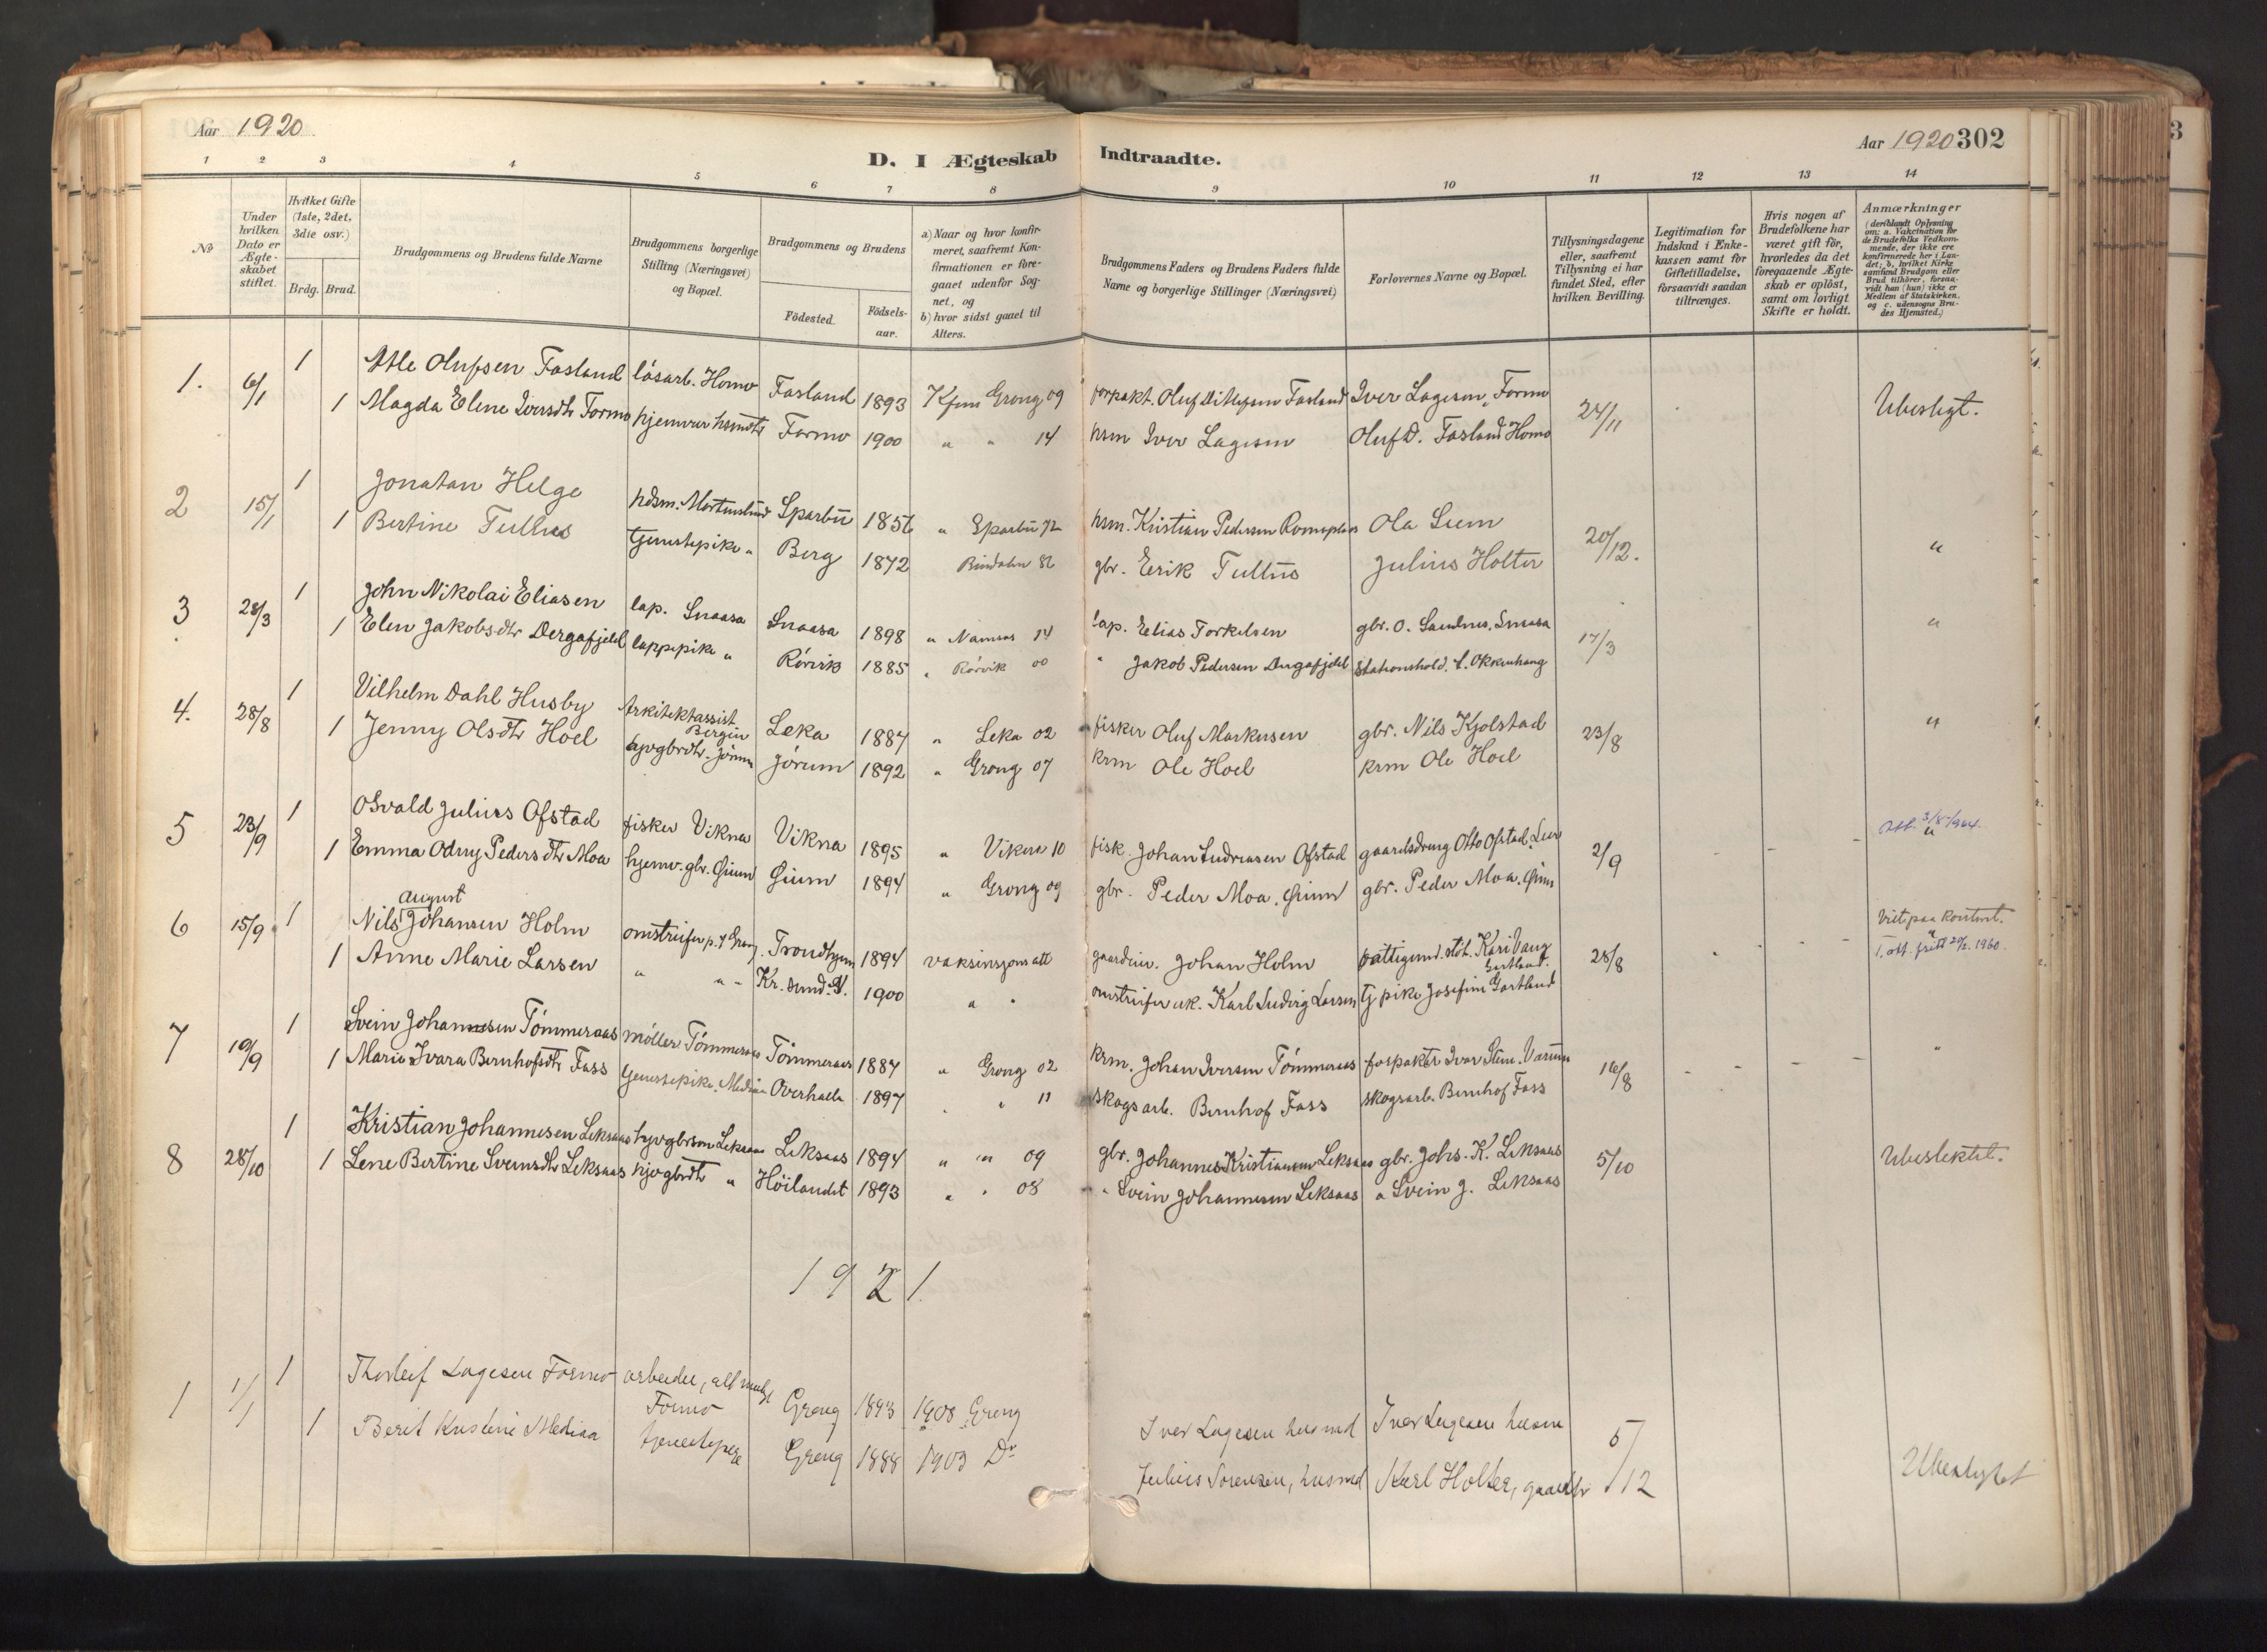 Aar 1920.
Aar 1920 302
D. I Ægteskab Indtraadte.
1 2 3 4 5 6 7 8 9 10 11 12 13 14
No
Under hvilken Dato er Ægteskabet stiftet.
Hvilket Gifte (1ste, 2det, 3die osv.)
Brdg. Brud.
Brudgommens og Brudens fulde Navne
Brudgommens borgerlige Stilling (Næringsvei) og Bopæl.
Brudgommens og Brudens
Födested.
Födsels-aar.
a) Naar og hvor konfirmeret, saafremt Konfirmationen er foregaaet udenfor Sognet, og
b) hvor sidst gaaet til Alters.
Brudgommens Faders og Brudens Faders fulde Navne og borgerlige Stillinger (Næringsvei)
Forlovernes Navne og Bopæl.
Tillysningsdagene eller, saafremt Tillysning ei har fundet Sted, efter hvilken Bevilling.
Legitimation for Indskud i Enkekassen samt for Giftetilladelse, forsaavidt saadan tiltrænges.
Hvis nogen af Brudefolkene har været gift för, hvorledes da det foregaaende Ægteskab er oplöst, samt om lovligt Skifte er holdt.
Anmærkninger
(deriblandt Oplysning om: a. Vakcination for de Brudefolks Vedkommende, der ikke ere konfirmerede her i Landet; b. hvilket Kirkesamfund Brudgom eller Brud tilhörer, forsaavidt han (hun) ikke er Medlem af Statskirken, og c. udensogns Brudes Hjemsted.)
1. 6/1 1 Atle Olufsen Fasland løsarb. Homo Fasland 1893 Kfm Grong 09 forpakt. Oluf Ditlefsen Fasland Iver Lagesen, Formo 24/11 Ubeslgt.
1 Magda Elene Iversdtr Formo hjemvær hsmdtr Formo 1900 " " 14 hsm Iver Lagesen Oluf D. Fasland Homo
2 15/1 1 Jonatan Helge hdsm. Mortenslund Sparbu 1856 " Sparbu 72 hsm. Kristian Pedersen Romoplass Ola Lum 20/12. "
1 Bertine Tullus tjenestepike " Berg 1872 Bindalen 86 gbr. Eerik Tullus Julius Holter
3 28/3 1 John Nikolai Eliasen lap. Snaasa Snaasa 1898 " Namsos 14 lap. Elias Torkelsen gbr. O. Sandnes, Snaasa 17/3 "
1 Elen Jakobsdtr Dergafjeld lappepike " Rørvik 1885 " Rørvik 00 " Jakob Pedersen Dergafjeld Stationshold. L. Okkenhaug
4. 28/8 1 Vilhelm Dahl Husby Arkitektassist Bergen Leka 1884 " Leka 02 fisker Oluf Markusen gbr. Nils Kjolstad 23/8 "
1 Jenny Olsdtr Hoel hjvgbrdtr. Jørum Jørum 1892 " Grong 07 krm Ole Hoel krm Ole Hoel
5 23/9 1 Osvald Julius Ofstad fisker Vikna Vikna 1895 " Vikna 10 fisk. Johan Ludviksen Ofstad gaardsdreng Otto Ofstad 2/9 - - Att. 3/8 1964. "
1 Emma Odny Pedersdtr Moa hjemv. gbr. Gium Gium 1894 " Grong 09 gbr. Peder Moa, Gium gbr. Peder Moa, Gium
6 15/9 1 Nils August Johansen Holm omstreifer p. t Grong Trondhjem 1894 vaksinsjons att gaardeier. Johan Holm fattigund. stöt. Kari Vang Gartland. 28/8 - - - Viet paa kontoret. "
1 Anne Marie Larsen " " " Kr.sund. N. 1900 " " omstreifer uk. Karl Ludvig Larsen tj pike Josefine Gartland 1. att. fritt 20/2. 1960.
7 19/9 1 Svein Johannesen Tømmeraas møller Tømmeraas Tømmeraas 1887 " Grong 02 krm. Johan Iversen Tømmeraas forpakter Ivar Stene. 16/8 - - - "
1 Marie Ivara Bernhofsdtr Fass tjenestepike. Mediaa Overhalla 1897 " " 11 skogsarb. Bernhof Fass skogsarb. Bernhof Fass
8 28/10 1 Kristian Johannesen Leksaas hjvgbrsøn Leksaas Leksaas 1894 " " 09 gbr. Johannes Kristiansen Leksaas gbr. Johs. K. Leksaas 5/10 Ubeslektet.
1 Lene Bertine Sveinsdtr Leksaas hjvgbrdtr " Höilandet 1893 " " 08 " Svein Johannesen Leksaas " Svein J. Leksaas
1921.
1 1/1 1 Thorleif Lagesen Formo arbeider, Formo Grong 1893 1908 Grong Iver Lagesen husmd Iver Lagesen husm 5/12 Ubeslegtet
1 Berit Kristine Mediaa tjenestepige Grong 1888 1903 Do Julius Sørensen, husmd Karl Holter, gaardbr